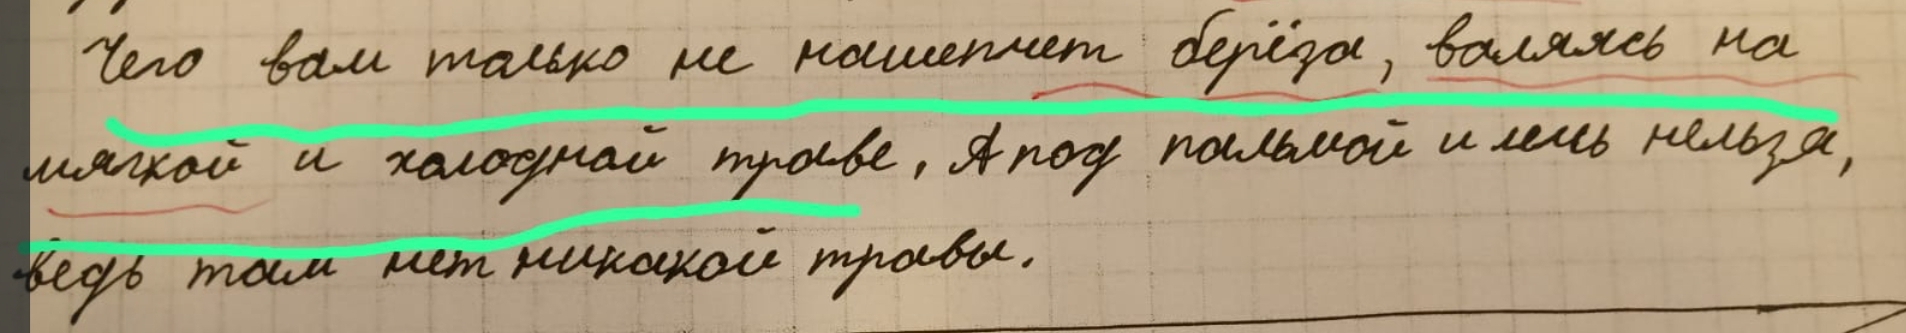 Чего вам только не нашепчет берёза, валяясь на
мягкой и холодной траве, А под пальмой и лечь нельзя,
ведь там нет никакой травы.